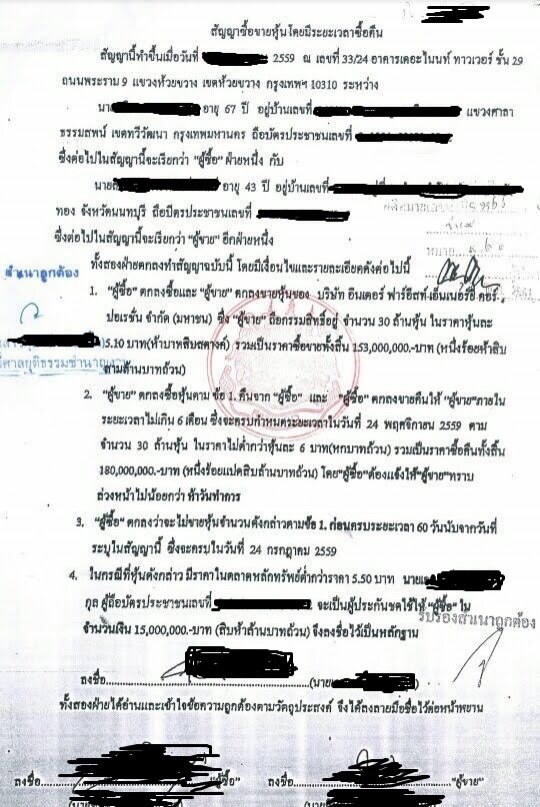 สัญญาซื้อขายหุ้นโดยมีระยะเวลาซื้อคืน
สัญญานี้ทำขึ้นเมื่อวันที่ 2559 ณ เลขที่ 33/24 อาคารเดอะไนนท์ ทาวเวอร์ ชั้น 29
ถนนพระราม 9 แขวงห้วยขวาง เขตห้วยขวาง กรุงเทพฯ 10310 ระหว่าง
นา อายุ 67 ปี อยู่บ้านเลขที่ แขวงศาลา
ธรรมสพน์ เขตทวีวัฒนา กรุงเทพมหานคร ถือบัตรประชาชนเลขที่
ซึ่งต่อไปในสัญญานี้จะเรียกว่า "ผู้ซื้อ" ฝ่ายหนึ่ง กับ
นาย อายุ 43 ปี อยู่บ้านเลขที่
ทอง จังหวัดนนทบุรี ถือบัตรประชาชนเลขที่
ซึ่งต่อไปในสัญญานี้จะเรียกว่า "ผู้ขาย" อีกฝ่ายหนึ่ง
ทั้งสองฝ่ายตกลงทำสัญญาฉบับนี้ โดยมีเงื่อนไขและรายละเอียดดังต่อไปนี้
สำเนาถูกต้อง
1. "ผู้ซื้อ" ตกลงซื้อและ "ผู้ขาย" ตกลงขายหุ้นของ บริษัท อินเตอร์ ฟาร์อีสท์ เอ็นเนอร์ยี่ คอร์
ปอเรชั่น จำกัด (มหาชน) ซึ่ง "ผู้ขาย" ถือกรรมสิทธิ์อยู่ จำนวน 30 ล้านหุ้น ในราคาหุ้นละ
5.10 บาท(ห้าบาทสิบสตางค์) รวมเป็นราคาซื้อขายทั้งสิ้น 153,000,000.-บาท (หนึ่งร้อยห้าสิบ
สามล้านบาทถ้วน)
ศาลยุติธรรมชำนาญงาน
2. "ผู้ขาย" ตกลงซื้อหุ้นตาม ข้อ 1. คืนจาก "ผู้ซื้อ" และ "ผู้ซื้อ" ตกลงขายคืนให้ "ผู้ขาย"ภายใน
ระยะเวลาไม่เกิน 6 เดือน ซึ่งจะครบกำหนดระยะเวลาในวันที่ 24 พฤศจิกายน 2559 ตาม
จำนวน 30 ล้านหุ้น ในราคาไม่ต่ำกว่าหุ้นละ 6 บาท(หกบาทถ้วน) รวมเป็นราคาซื้อคืนทั้งสิ้น
180,000,000.-บาท (หนึ่งร้อยแปดสิบล้านบาทถ้วน) โดย"ผู้ซื้อ"ต้องแจ้งให้"ผู้ขาย"ทราบ
ล่วงหน้าไม่น้อยกว่า ห้าวันทำการ
3. "ผู้ซื้อ" ตกลงว่าจะไม่ขายหุ้นจำนวนดังกล่าวตามข้อ 1. ก่อนครบระยะเวลา 60 วันนับจากวันที่
ระบุในสัญญานี้ ซึ่งจะครบในวันที่ 24 กรกฎาคม 2559
4. ในกรณีที่หุ้นดังกล่าว มีราคาในตลาดหลักทรัพย์ต่ำกว่าราคา 5.50 บาท นาย
กุล ผู้ถือบัตรประชาชนเลขที่ จะเป็นผู้ประกันชดใช้ให้ "ผู้ซื้อ" ใน
จำนวนเงิน 15,000,000.-บาท (สิบห้าล้านบาทถ้วน) จึงลงชื่อไว้เป็นหลักฐาน
รับรองสำเนาถูกต้อง
ลงชื่อ (นาย )
ทั้งสองฝ่ายได้อ่านและเข้าใจข้อความถูกต้องตามวัตถุประสงค์ จึงได้ลงลายมือชื่อไว้ต่อหน้าพยาน
ลงชื่อ "ผู้ซื้อ" ลงชื่อ "ผู้ขาย"